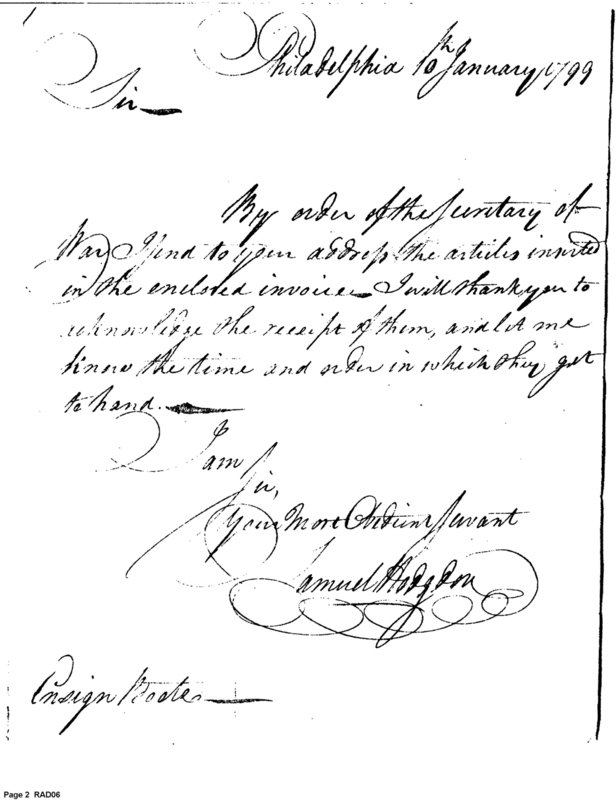 Philadelphia 10th January 1799
Sir
By order of the Secretary of
War I send to your address the articles inserted
in the enclosed invoice. I will thank you to
acknowledge the receipt of them, and let me
know the time and order in which they get
to hand.
I am
Sir,
Your Most Obedient Servant
Samuel Hodgdon
Ensign
Page 2 RAD06